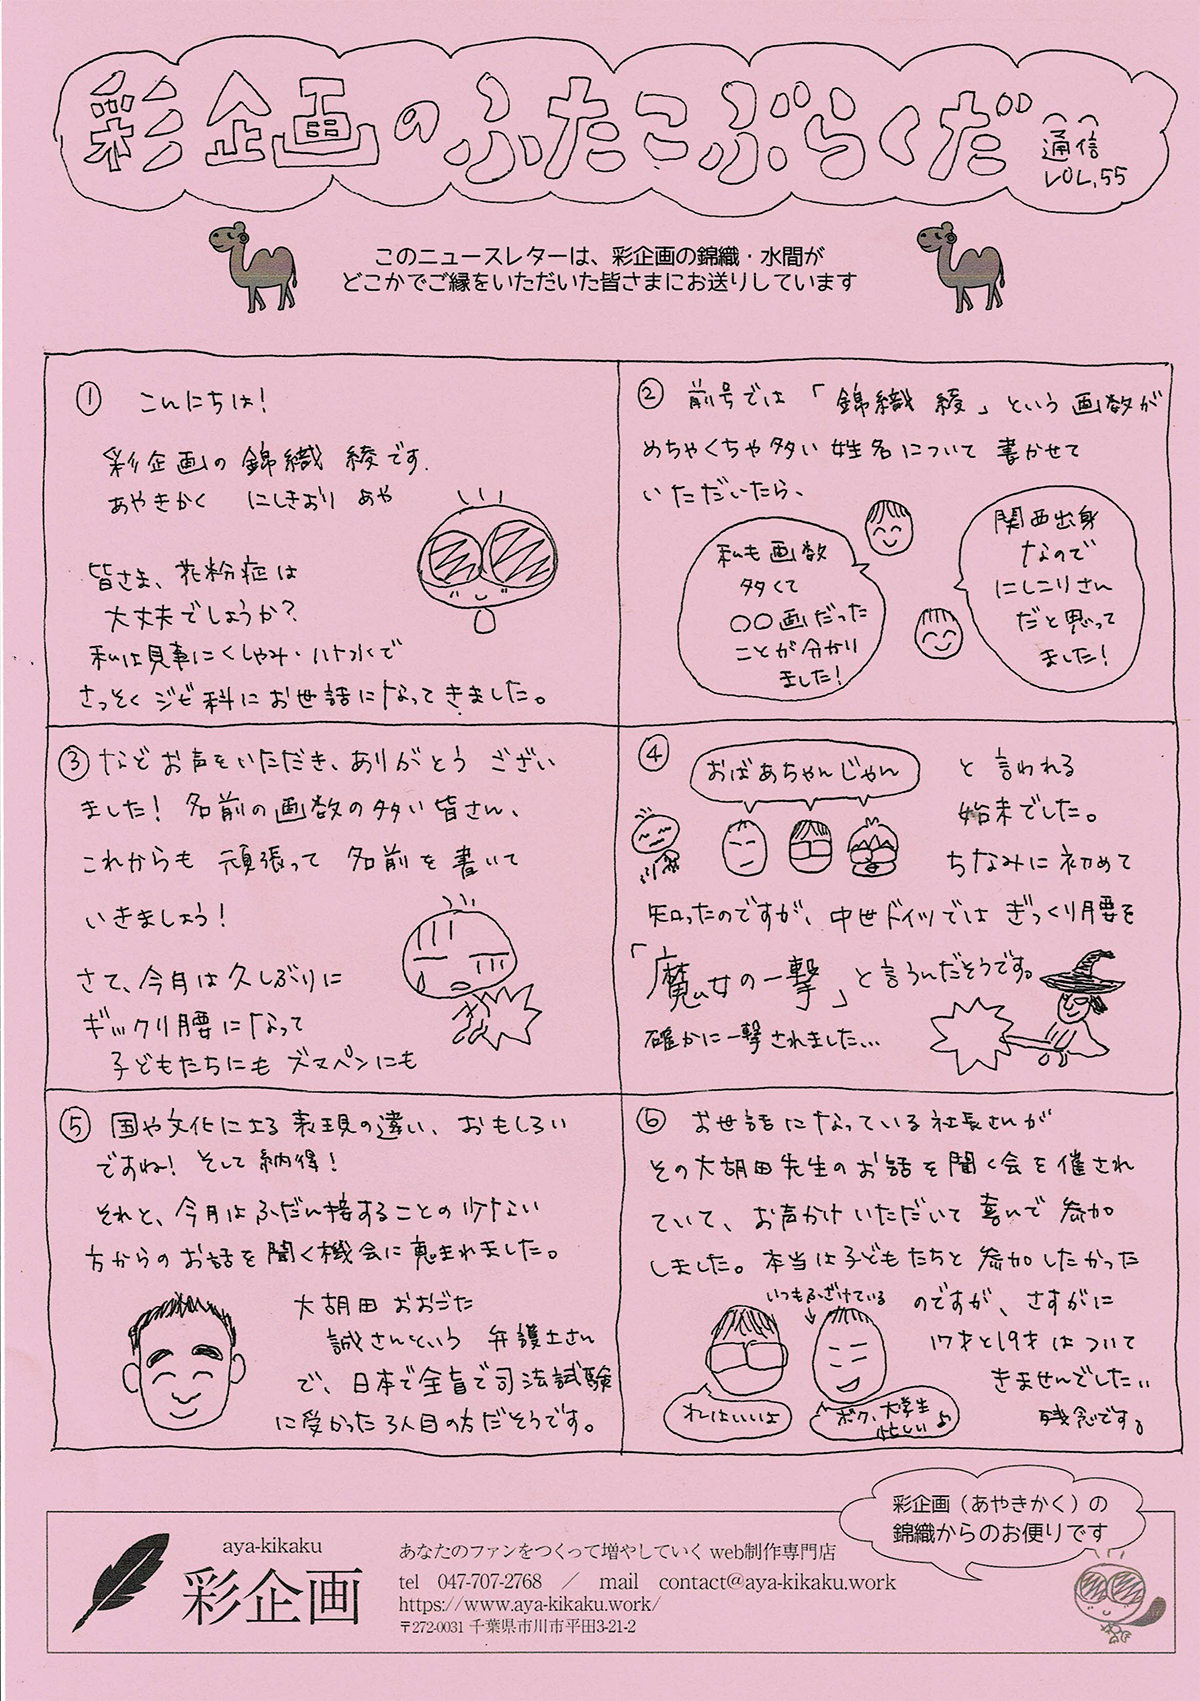 彩企画のふたこぶらくだ
通信
VOL,55
このニュースレターは、彩企画の錦織・水間が
どこかでご縁をいただいた皆さまにお送りしています
① こんにちは!
彩企画の 錦織 綾です.
あやきかく にしきおり あや
皆さま、花粉症は
大丈夫でしょうか?
私は見事にくしゃみ・ハナ水で
さっそく ジビ科にお世話になってきました。
② 前号では「錦織 綾」という画数が
めちゃくちゃ多い姓名について 書かせて
いただいたら、
私も画数
多くて
〇〇画だった
ことが分かり
ました!
関西出身
なので
にしこりさん
だと思って
ました!
③ などお声をいただき、ありがとう ござい
ました! 名前の画数の多い皆さん、
これからも 頑張って 名前を書いて
いきましょう!
さて、今月は久しぶりに
ギックリ腰になって
子どもたちにも ズマペンにも
④ おばあちゃんじゃん
と 言われる
始末でした。
ちなみに初めて
知ったのですが、中世ドイツでは ぎっくり腰を
「魔女の一撃」と言うんだそうです。
確かに一撃されました...
⑤ 国や文化による表現の違い、おもしろい
ですね! そして納得!
それと、今月はふだん接することの少ない
方からのお話を聞く機会に恵まれました。
大胡田 おおごだ
誠さんという 弁護士さん
で、日本で全盲で司法試験
に受かった3人目の方だそうです。
⑥ お世話になっている社長さんが
その大胡田先生のお話を聞く会を催され
ていて、お声かけいただいて喜んで参加
しました。本当は子どもたちと参加したかった
いつもふざけている
のですが、さすがに
17才と19才はついて
きませんでした..
残念です。
オレはいいよ
ボク、大学生
忙しい♪
彩企画（あやきかく）の
錦織からのお便りです
aya-kikaku
彩企画
あなたのファンをつくって増やしていく web制作専門店
tel 047-707-2768 ／ mail contact@aya-kikaku.work
https://www.aya-kikaku.work/
〒272-0031 千葉県市川市平田3-21-2